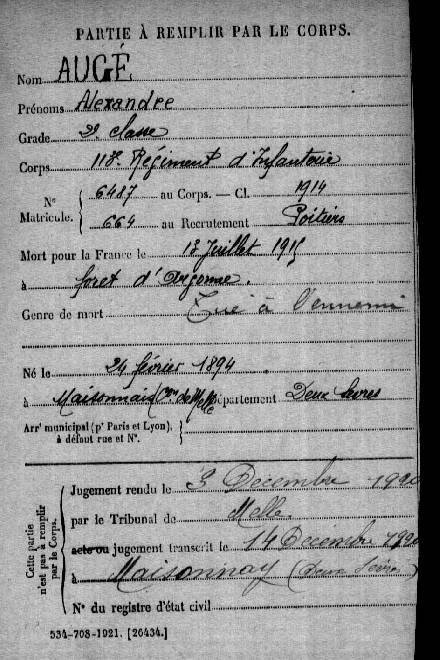 PARTIE À REMPLIR PAR LE CORPS.
Nom AUGÉ
Prénoms Alexandre
Grade 2e classe
Corps 113e Régiment d'Infanterie
N° Matricule. { 6487 au Corps. — Cl. 1914
664 au Recrutement Poitiers
Mort pour la France le 13 Juillet 1915
à forêt d'Argonne.
Genre de mort Tué à l'ennemi
Né le 24 février 1894
à Maisonnais (Con de Melle Département Deux Sèvres
Arrt municipal (pr Paris et Lyon), à défaut rue et N°. {
Cette partie n'est pas à remplir par le Corps.
Jugement rendu le 3 Decembre 1920
par le Tribunal de Melle
acte ou jugement transcrit le 14 Decembre 1920
à Maisonnay (Deux Sèvres)
N° du registre d'état civil
534-708-1921. [26434.]